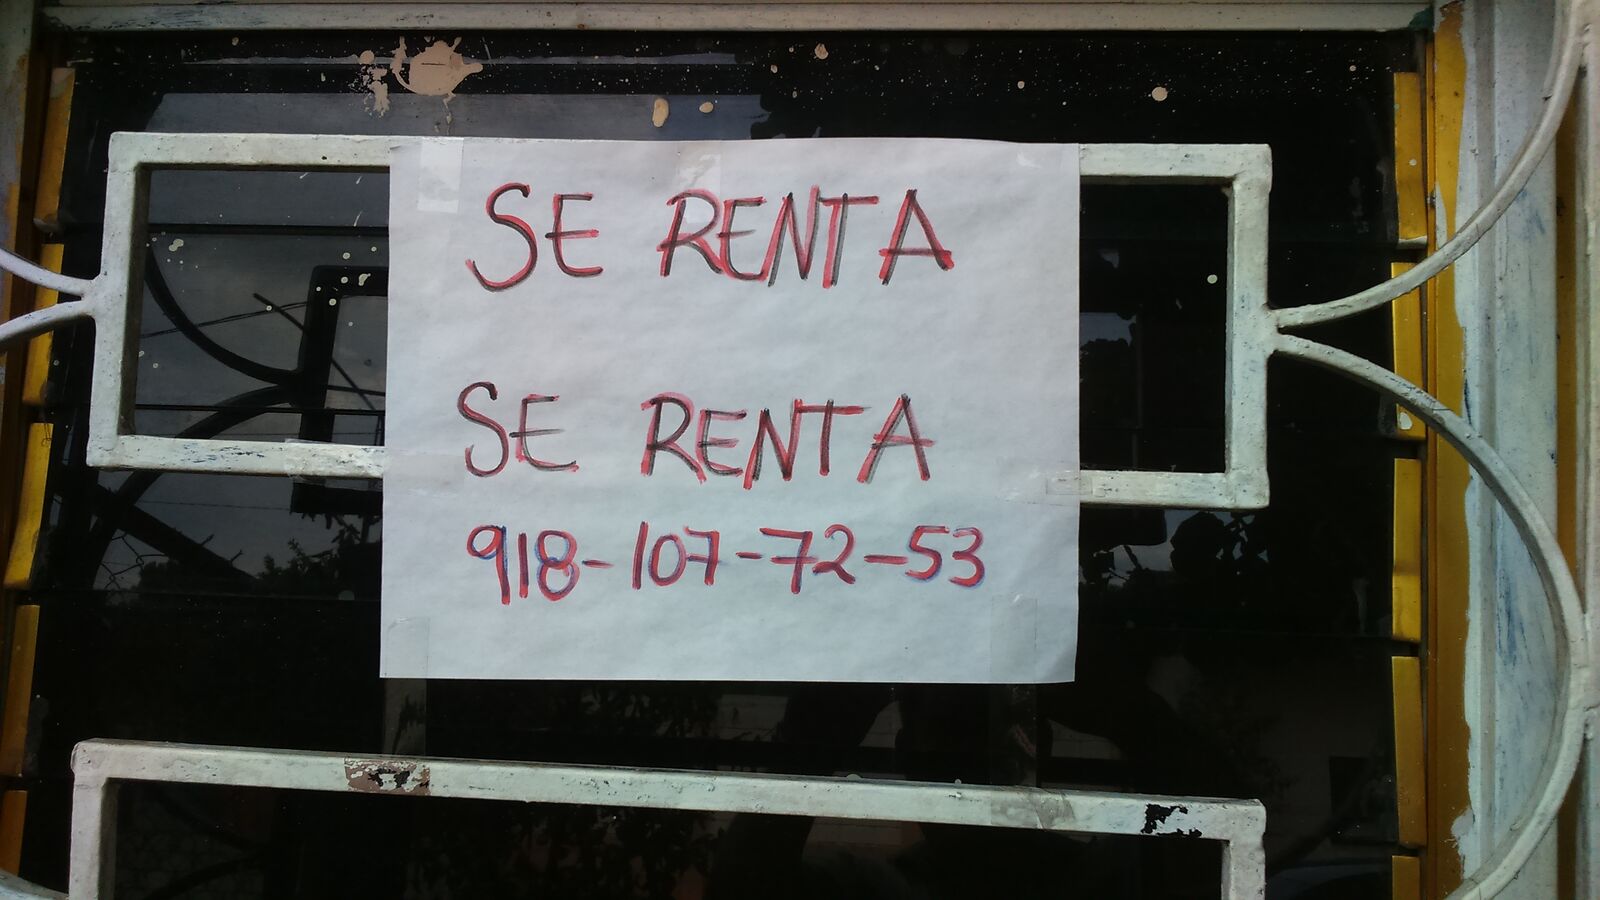 SE RENTA
SE RENTA
918-107-72-53